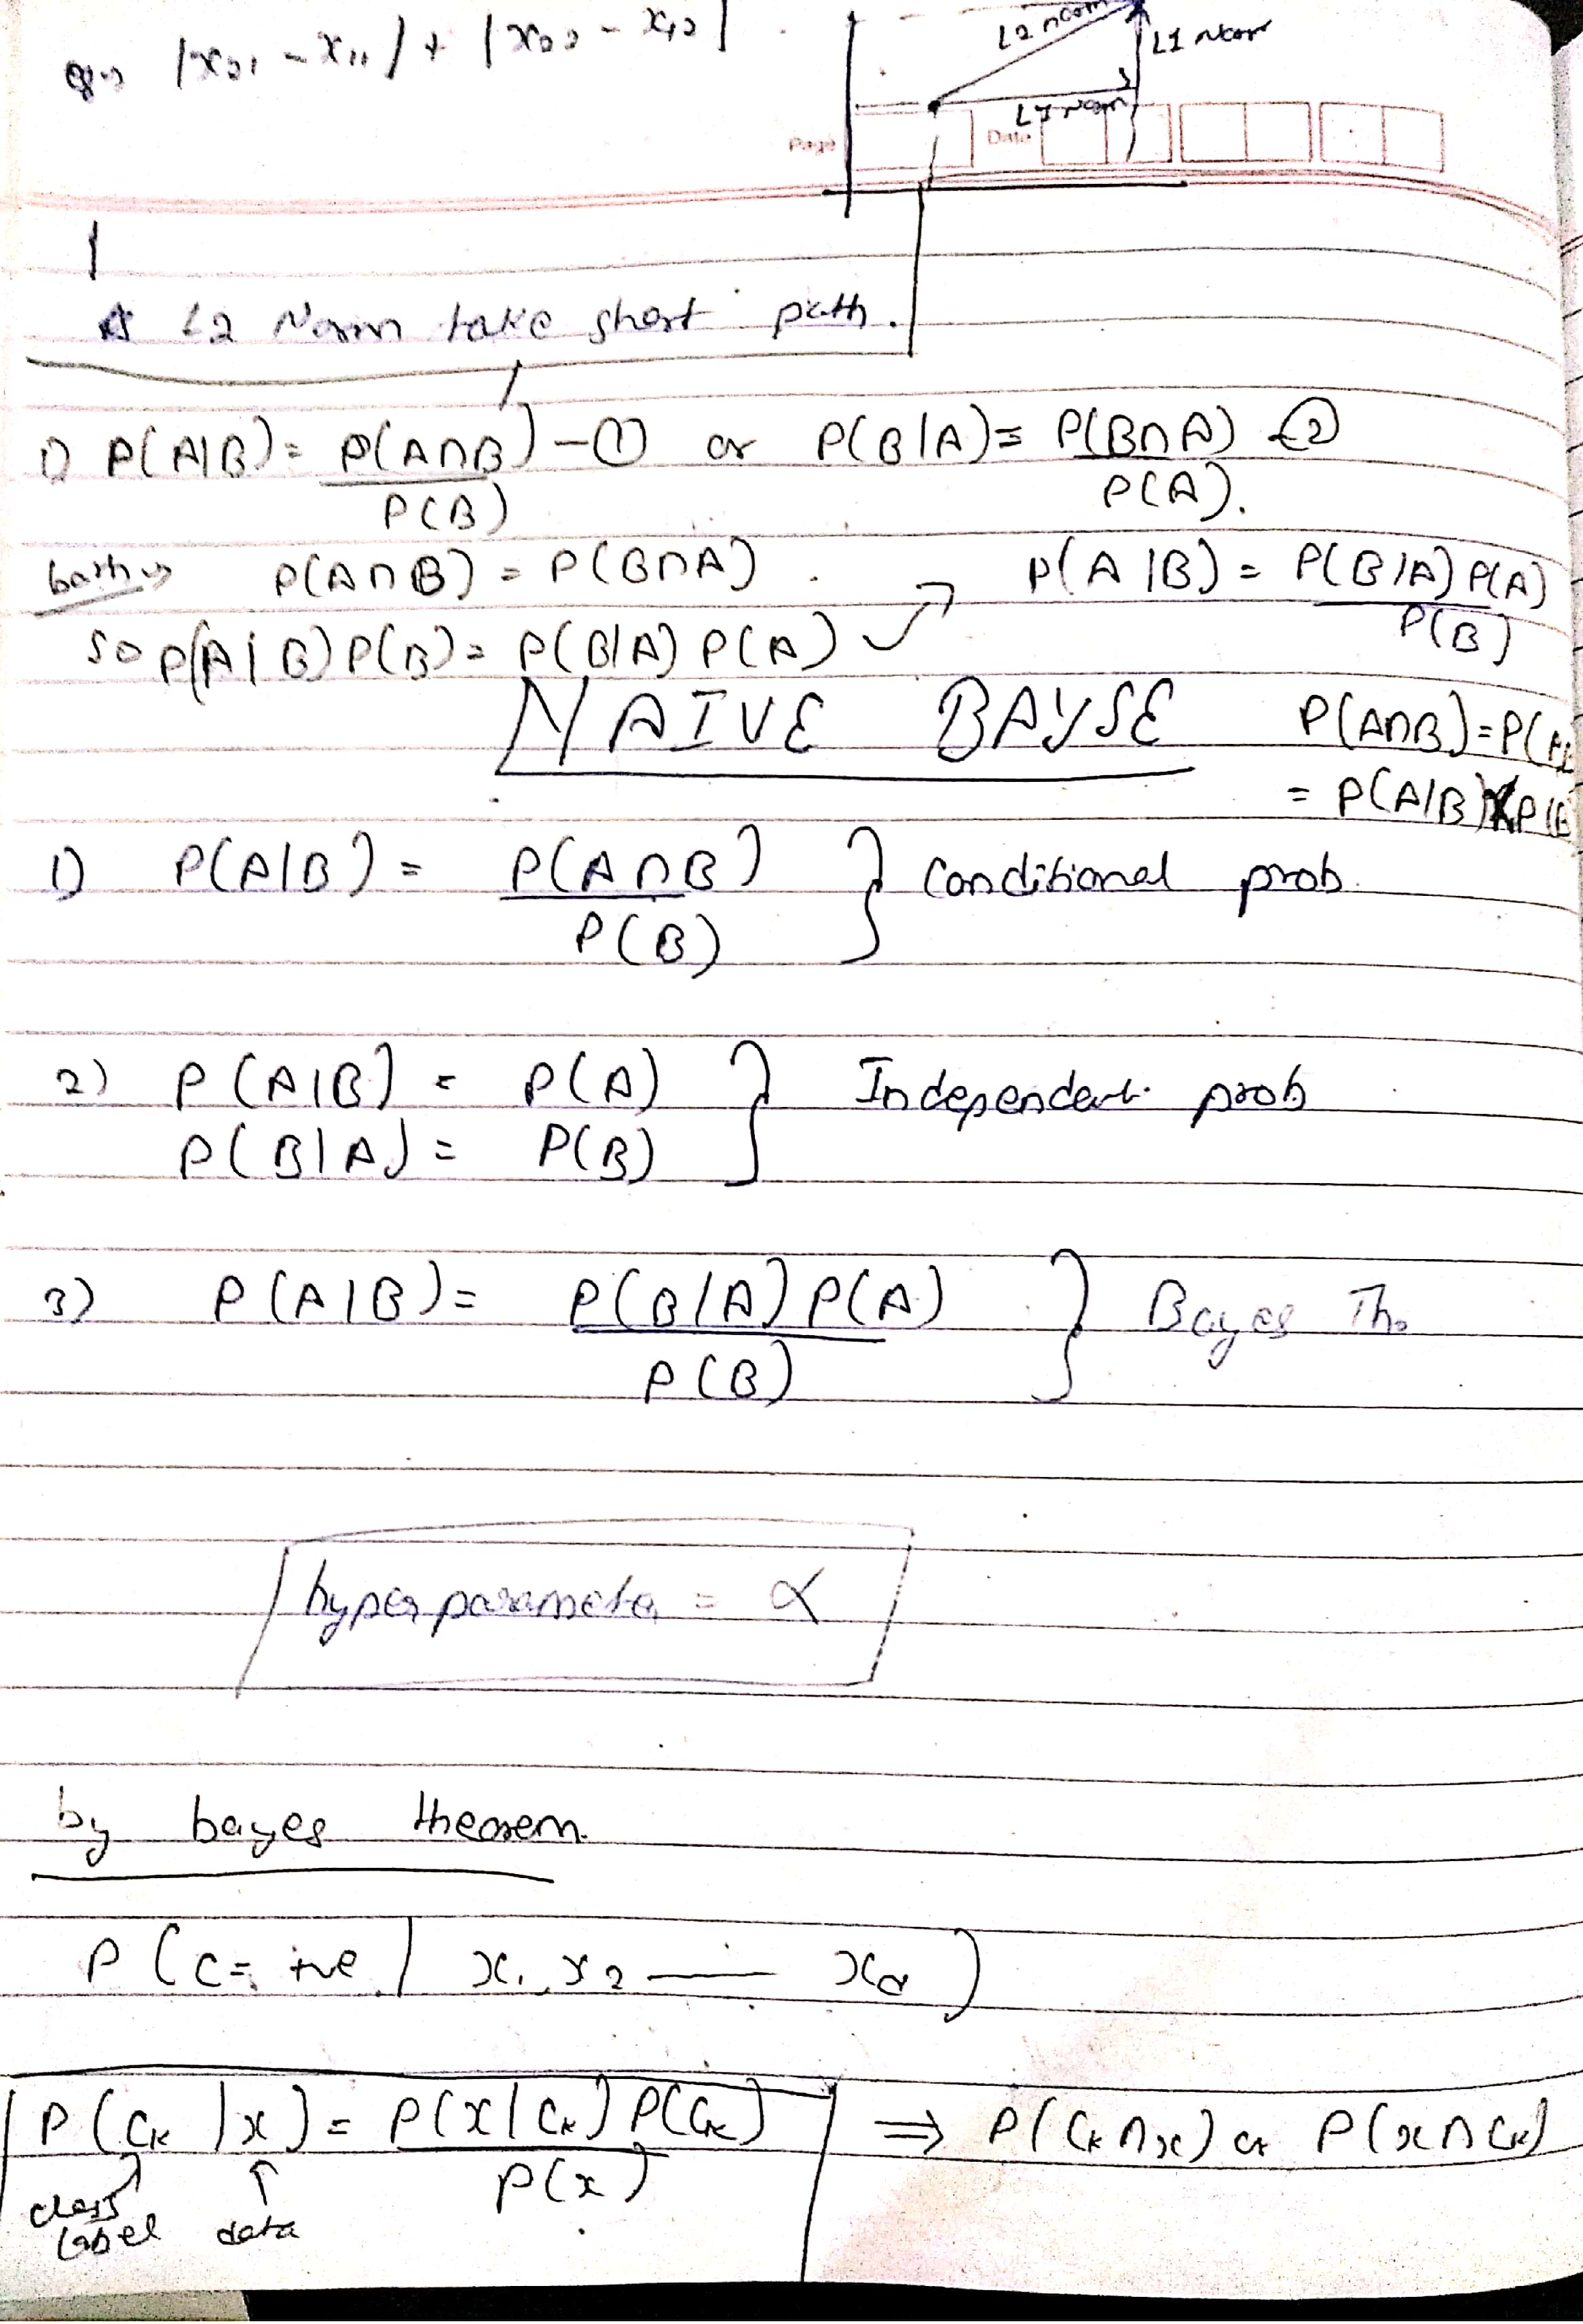 |x₂₁ - x₁₁| + |x₂₂ - x₁₂|
L2 norm
L1 Norm
L1 norm
Page
Date
L2 Norm take short path.
1) P(A|B) = P(A∩B) / P(B) - ① or P(B|A) = P(B∩A) / P(A). - ②
P(A∩B) = P(B∩A).
So P(A|B) P(B) = P(B|A) P(A)
P(A|B) = P(B|A) P(A) / P(B)
NAIVE BAYSE
P(A∩B) = P(A
= P(A|B) × P(B
1) P(A|B) = P(A∩B) / P(B) } Conditional prob.
2) P(A|B) = P(A)
P(B|A) = P(B) } Independent prob
3) P(A|B) = P(B|A) P(A) / P(B) } Bayes Th.
hyperparameter = α
by bayes theorem.
P(C = +ve | x₁, x₂ —— x_d)
P(C_k | x) = P(x | C_k) P(C_k) / P(x) ⇒ P(C_k ∩ x) or P(x ∩ C_k)
class label
data